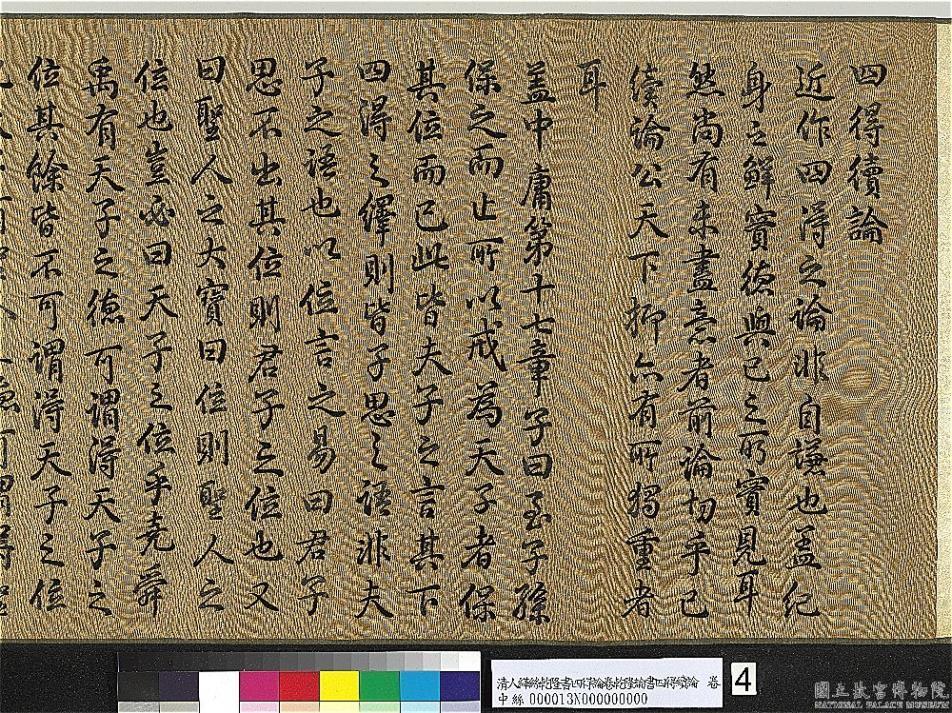 四得續論
近作四得之論非自謙也蓋紀
身之鮮實德與已之的實見耳
然尚有未盡意者前論切乎已
續論公天下抑亦有所獨重者
耳
蓋中庸第十七章子曰至子孫
保之而止所以戒為天子者保
其位而已此皆夫子之言其下
四得之繹則皆子思之語非夫
子之語也以位言之易曰君子
思不出其位則君子之位也又
曰聖人之大寶曰位則聖人之
位也豈必曰天子之位乎堯舜
禹有天子之德可謂得天子之
位其餘皆不可謂得天子之位
清人緙絲乾隆書四得論卷乾隆書四得續論 卷
中絲 000013N000000000
4
國立故宮博物院
NATIONAL PALACE MUSEUM